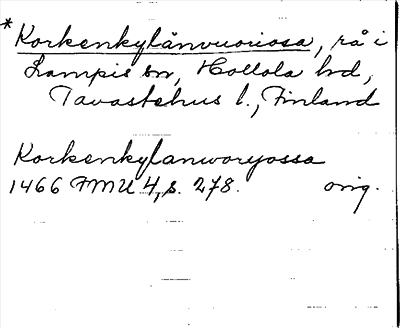 *Korkenkylänvuoriosa, rå i
Lampis sn, Hollola hd,
Tavastehus l., Finland
Korkenkylanworyossa
1466 FMU 4, s. 278. orig.